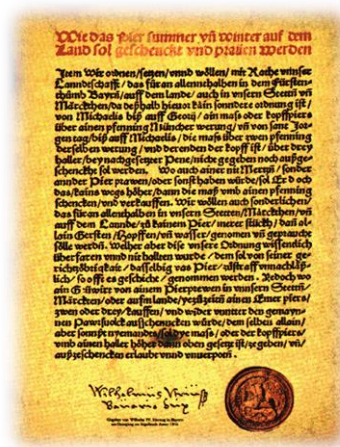 Wie das Pier summer vñ winter auf dem
Land sol geschenckt vnd prauen werden
Item Wir ordnen/setzen/vnnd wöllen/ mit Rathe vnnser
Lanndtschafft/ das für an allennthalben in dem Fürsten-
thůmb Bayrn/ auff dem lande/ auch in vnsern Stettñ vñ
Märckthen/ da deßhalb hieuor kain sonndere ordnung ist/
von Michaelis biß auff Georij/ ain mass oder kopffpiers
über ainen pfenning Müncher werung/ vñ von sant Jor-
gen tag/ biß auff Michaelis/ die mass über zwen pfenning
derselben werung/ vnd derenden der kopff ist/ über drey
haller/ bey nachgesetzter Pene/ nicht gegeben noch außge-
schenckht sol werden. Wo auch ainer nit Mertzñ/ sonder
annder Pier prawen/ oder sonst haben würde/ sol Er d och
das/ kains wegs höher/ dann die mass vmb ainen pfenning
schencken/ vnd verkauffen. Wir wöllen auch sonderlichen/
das füran allenthalben in vnsern Stetten/ Märckthen/ vñ
auff dem Lannde/ zů kainem Pier/ merer stückh/ dañ al-
lain Gersten/ Hopffen/ vñ wasser/ genomen vñ gepraucht
sölle werdñ. Welher aber dise vnsere Ordnung wissendlich
überfaren vnnd nit hallten wurde/ dem sol von seiner ge-
richtzöbrigkait/ dasselbig vas Pier/ zůstraff vnnachläß-
lich/ so offt es geschicht/ genommen werden. Jedoch wo
ain Gůwirt von ainem Pierprewen in vnnsern Stettñ/
Märckten/ oder aufm lande/ yezůzeitñ ainen Emer piers/
zwen oder drey/ kauffen/ vnd wider vnntter den gemayn-
nen Pawrsuolck ausschencken würde/ dem selben allain/
aber sonnst nyemandes/ sol dye mass/ oder der kopffpiers/
vmb ainen haller höher dann oben gesetzt ist/ ze geben/ vñ/
außzeschencken erlaubt vnnd vnuerpotñ.